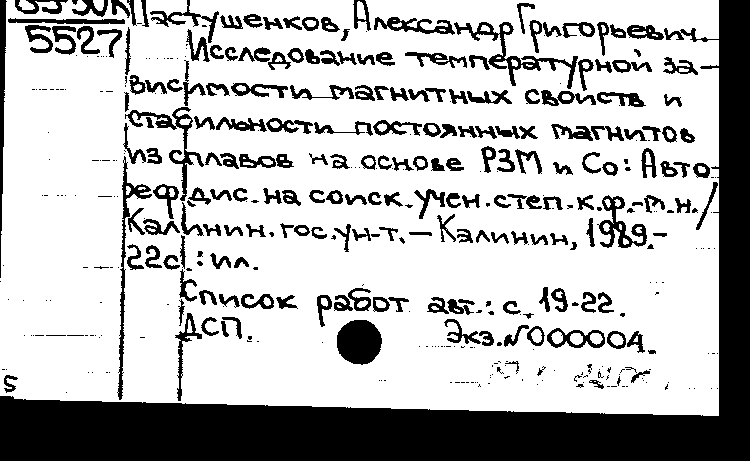 Пастушенков, Александр Григорьевич.
5527
Исследование температурной за-
висимости магнитных свойств и
стабильности постоянных магнитов
из сплавов на основе РЗМ и Со: Авто-
реф.дис.на соиск.учен.степ.к.ф.-м.н./
Калинин.гос.ун-т.-Калинин, 1989.-
22с.:ил.
Список работ авт.: с. 19-22.
ДСП. Экз.№000004.
5